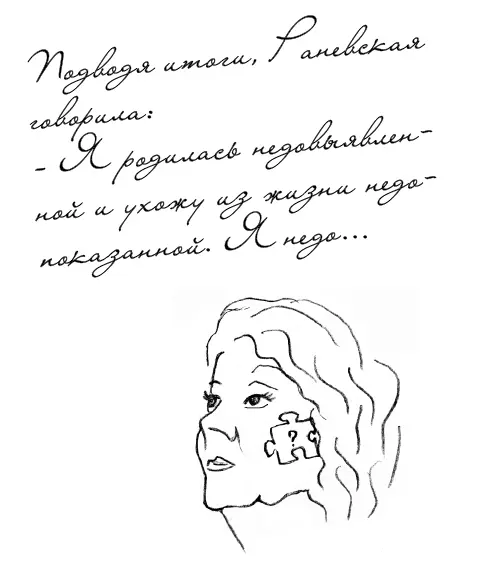 Подводя итоги, Раневская
говорила:
- Я родилась недовыявлен-
ной и ухожу из жизни недо-
показанной. Я недо...
?